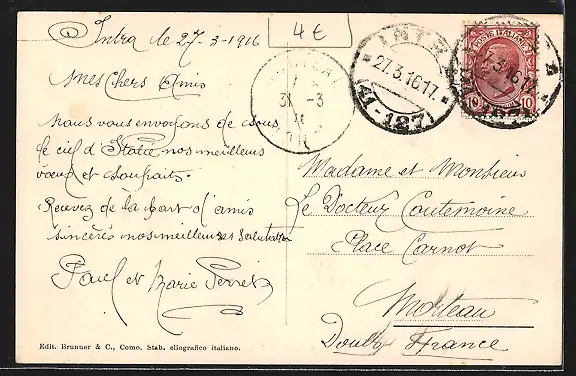 Intra le 27-3-1916
4€
Mes Chers Amis
Nous vous envoyons de sous
le ciel d'Italie nos meilleurs
vœux et souhaits.
Recevez de la part d'amis
sincères nos meilleures salutations
Paul et Marie Perret
Edit. Brunner & C., Como. Stab. eliografico italiano.
INTRA
27.3.16.17
(41-127)
31-3
POSTE ITALIANE
10 10
Madame et Monsieur
Le Docteur Coutemoine
Place Carnot
Morteau
Doubs France